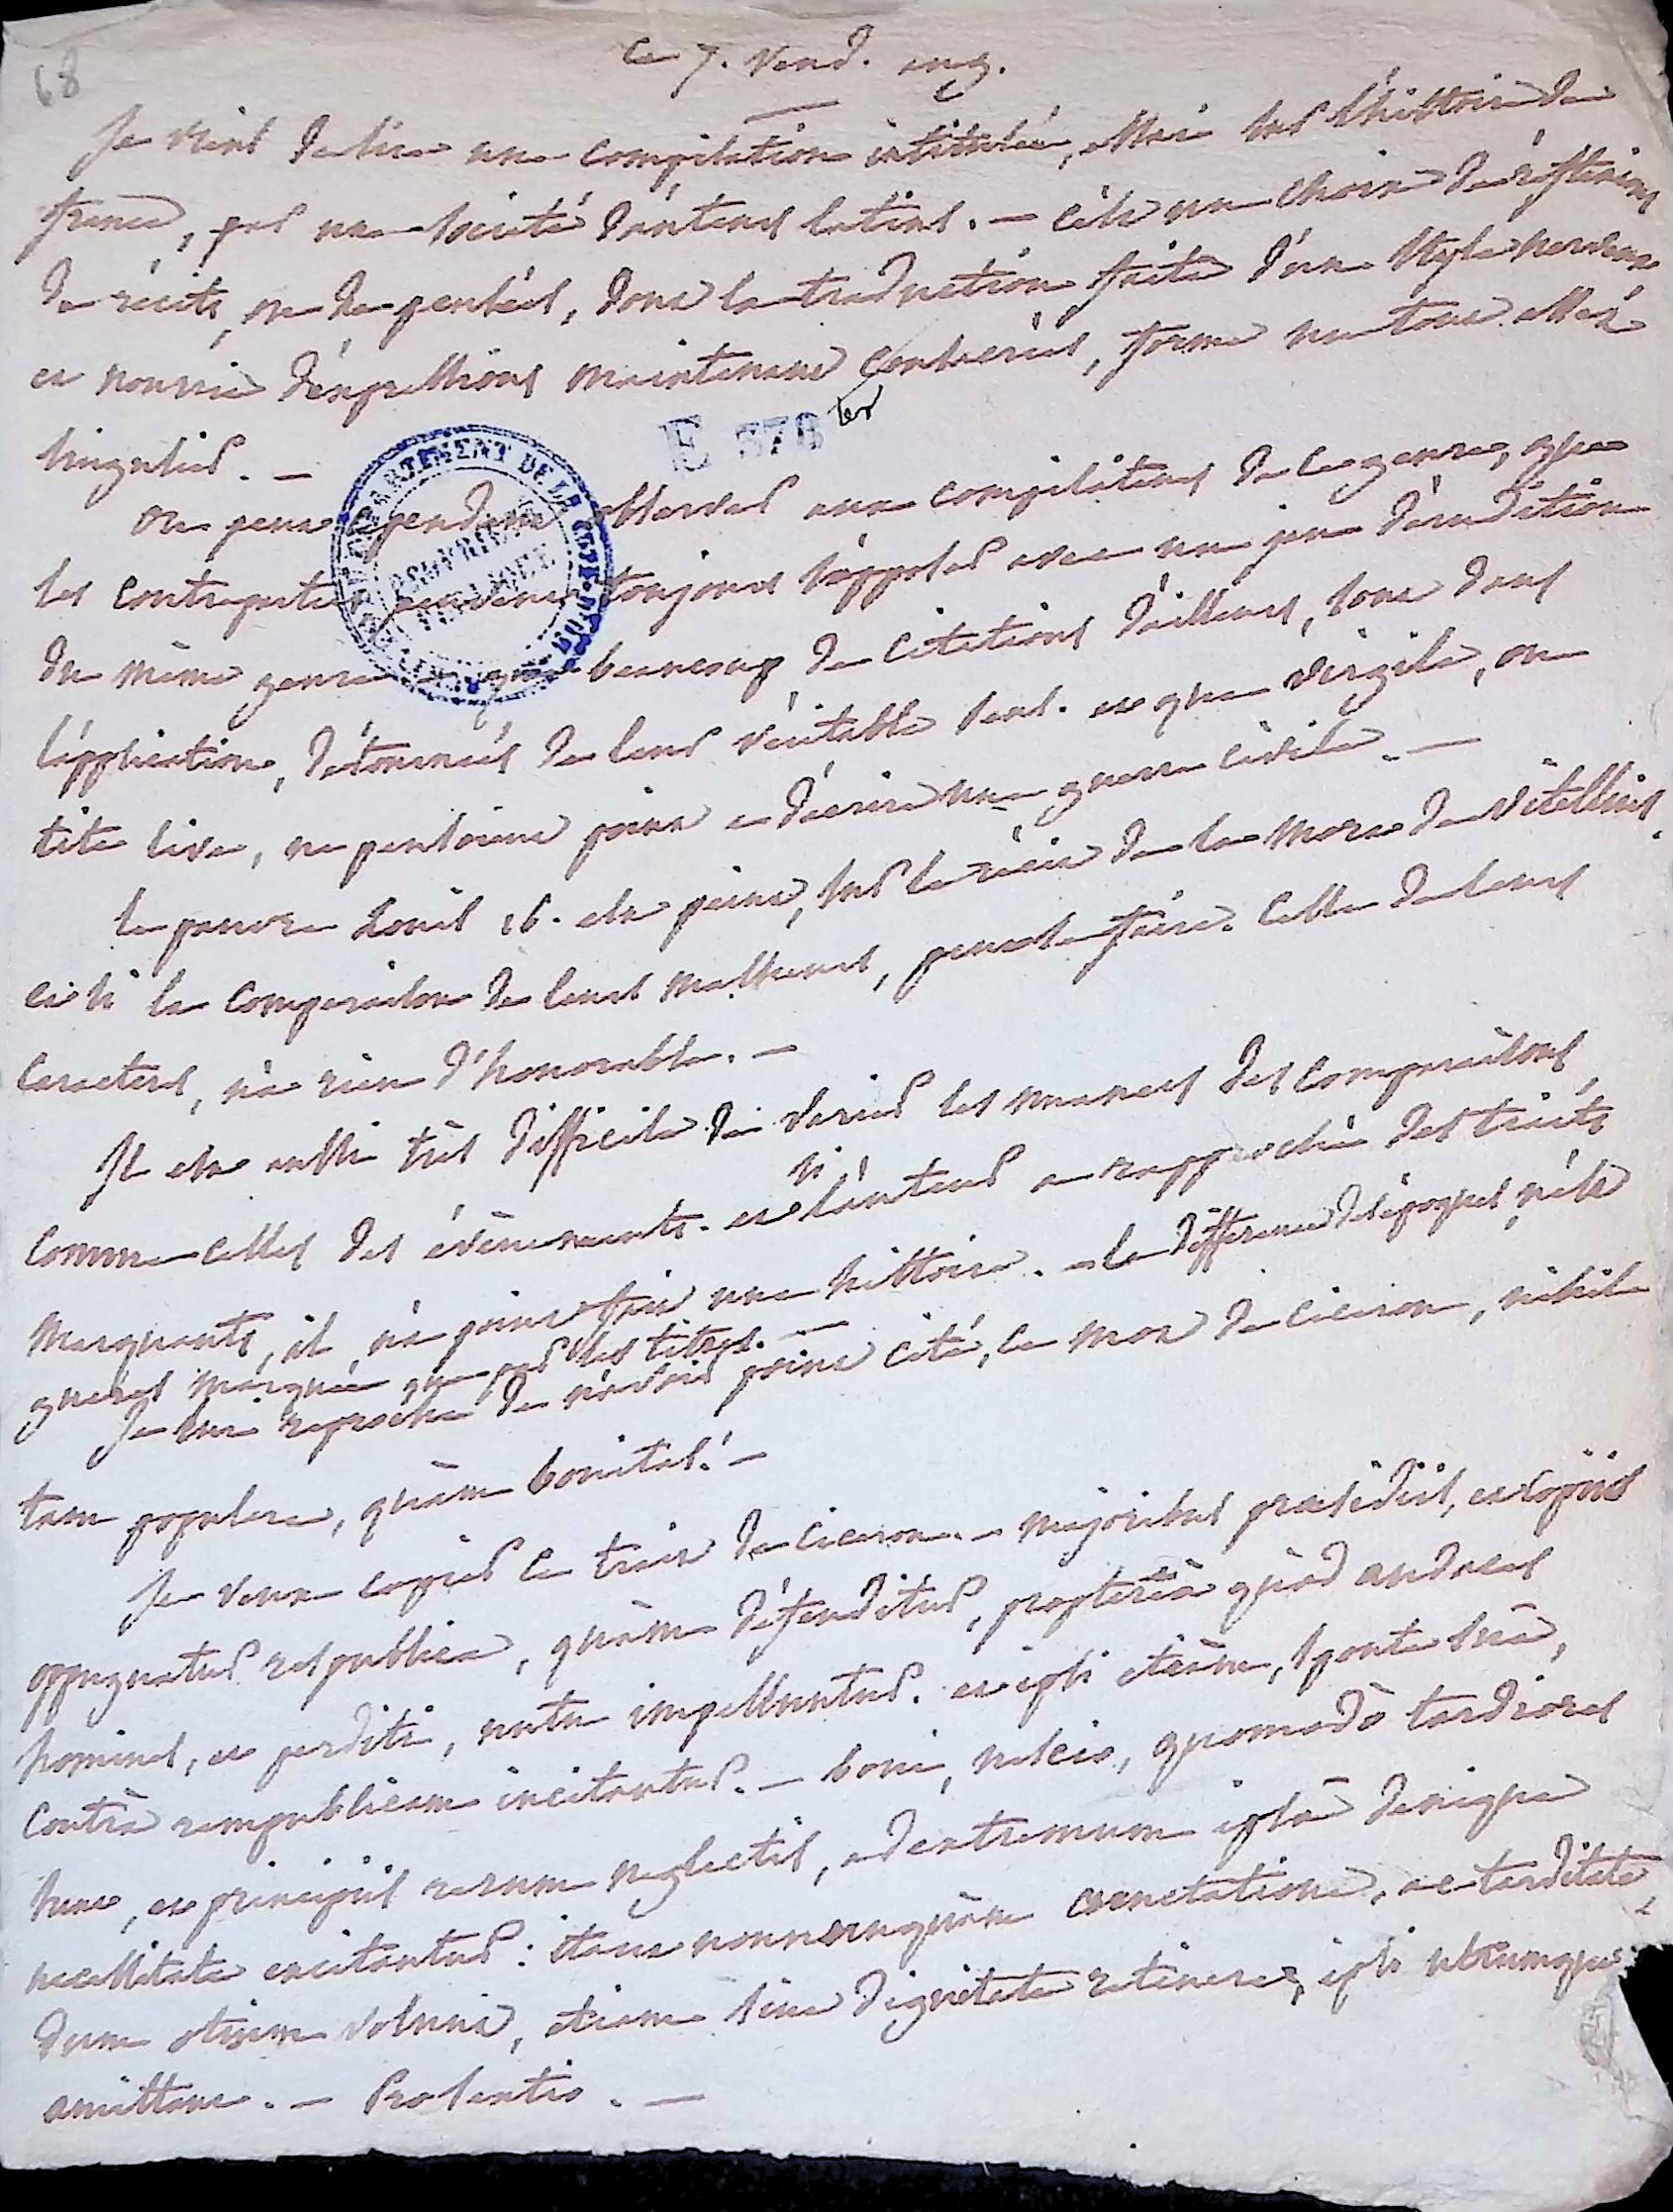 68
Ce 7. Vend. an 9.
Je viens de lire une compilation intitulée, essai sur l'histoire de
france, par une société d'auteurs latins. — c'est un choix de réflexions
de récits, ou de pensées, dont la traduction faite d'un style nerveux
et nourrie d'expressions maintenant consacrées, forme un tout assez
singulier. —
E 378 ter
on peut cependant observer aux compilateurs de ce genre, que
les contreparties peuvent toujours s'opposer avec un peu d'érudition
du même genre et que beaucoup de citations d'ailleurs, sont dans
l'application, détournées de leur véritable sens. et que virgile, ou
tite live, ne pensoient point a décrire une guerre civile. —
le pauvre Louis 16. est peint, sur le récit de la mort de vitellius.
ici si la comparaison de leurs malheurs, peut se faire. Celle de leurs
caracteres, n'a rien d'honorable. —
Il est aussi très difficile de varier les nuances des comparaisons
comme celles des évènements. et si l'auteur a rapproché des traits
marquants, il n'a point fait une histoire. — la différence des époques n'est
gueres marquée que par les titres. —
Je lui reproche de n'avoir point cité, ce mot de ciceron, nihil
tam populare, quàm bonitas. —
Je veux copier ce trait de ciceron. — majoribus praesidiis, et copiis
oppugnatur respublica, quàm défenditur, proptereà quòd audaces
homines, et perditi, nutu impelluntur. et ipsi etiàm, sponte suâ,
contrà rempublicam incitantur. — boni, nescio, quomodò tardiores
sunt, et principiis rerum neglectis, ad extremum ipsâ denique
necessitate excitantur: ita ut nonnunquàm cunctatione, ac tarditate,
dum otium volunt, etiam sine dignitate retinere, ipsi utrumque
amittant. — Pro sextio. —